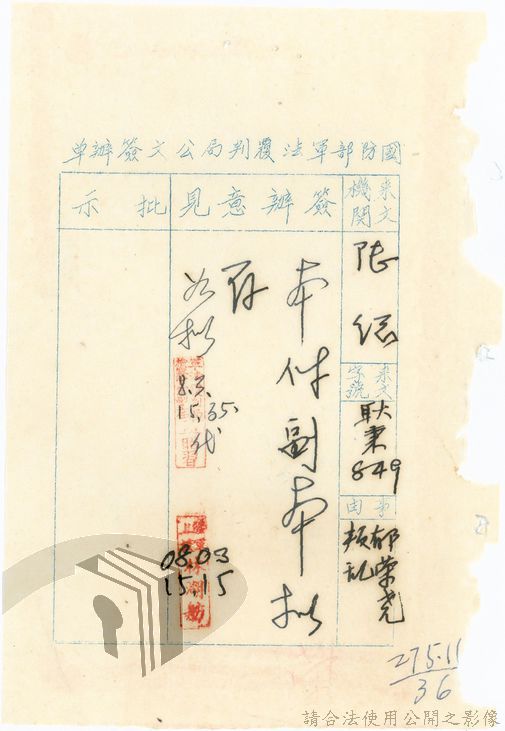 國防部軍法覆判局公文簽辦單
來文機關
陸總
來文字號
耿秉
849
事由
郁榮堯
叛亂
簽辦意見
本件副本擬
存
如擬
8.3.
15.35.
代
08.03
15.15
批示
275.11
36
請合法使用公開之影像